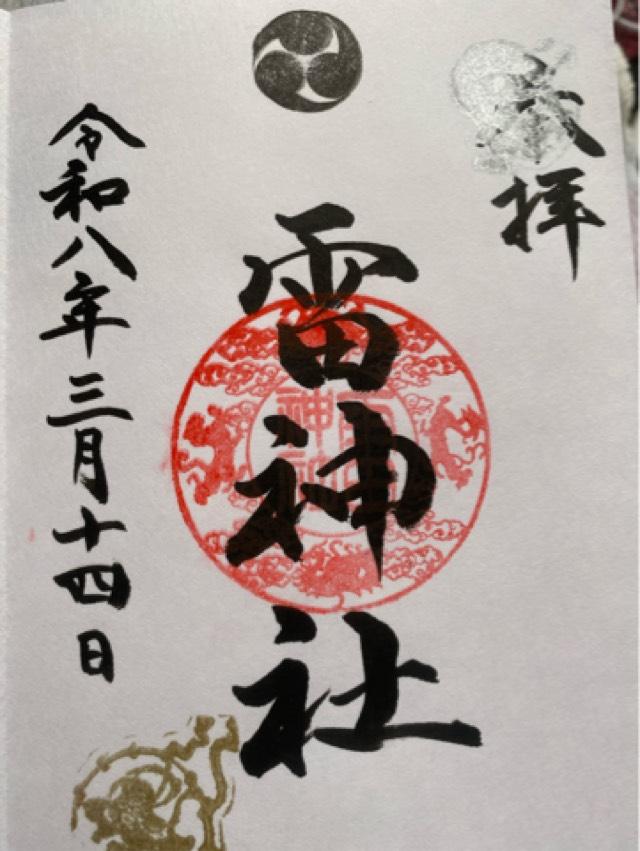 拝
雷神社
令和八年三月十四日